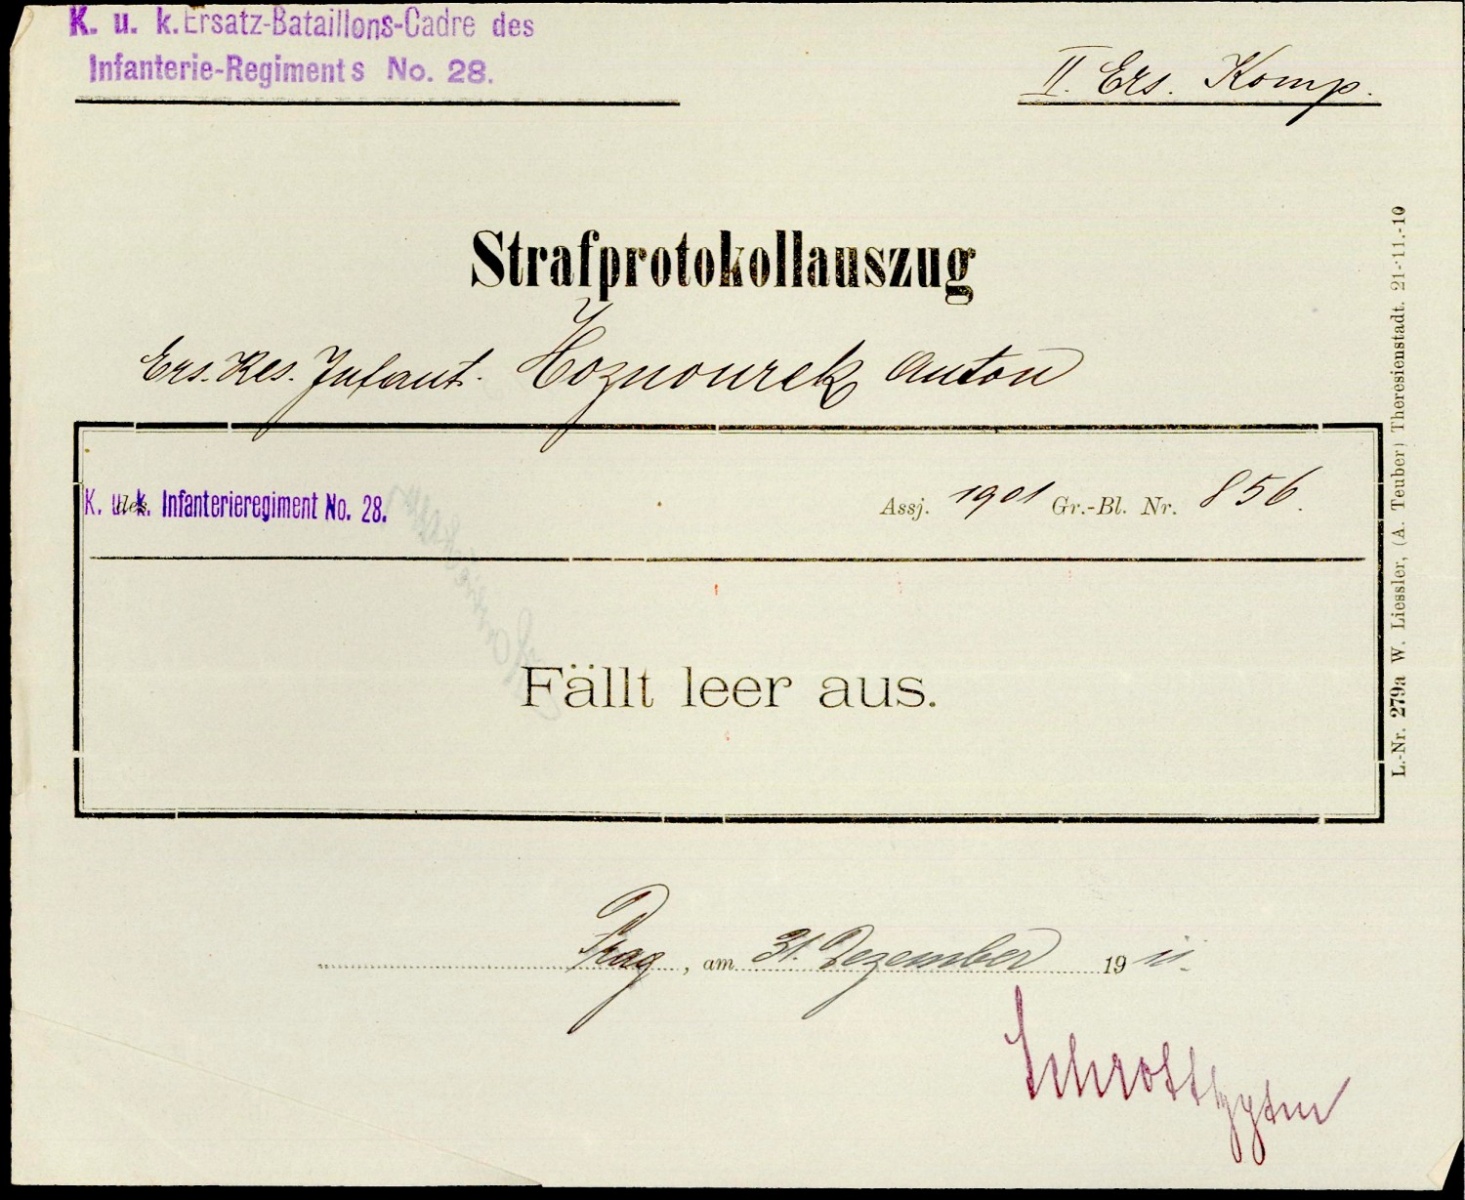 K. u. k. Ersatz-Bataillons-Cadre des
Infanterie-Regiments No. 28.
II. Ers. Komp.
Strafprotokollauszug
Ers. Res. Infant. Hoznourek Anton
des K. u. k. Infanterieregiment No. 28. Assj. 1901 Gr.-Bl. Nr. 856.
Fällt leer aus.
Prag, am 31. Dezember 1911.
L.-Nr. 279a W. Liessler, (A. Teuber) Theresienstadt. 21-11.-10